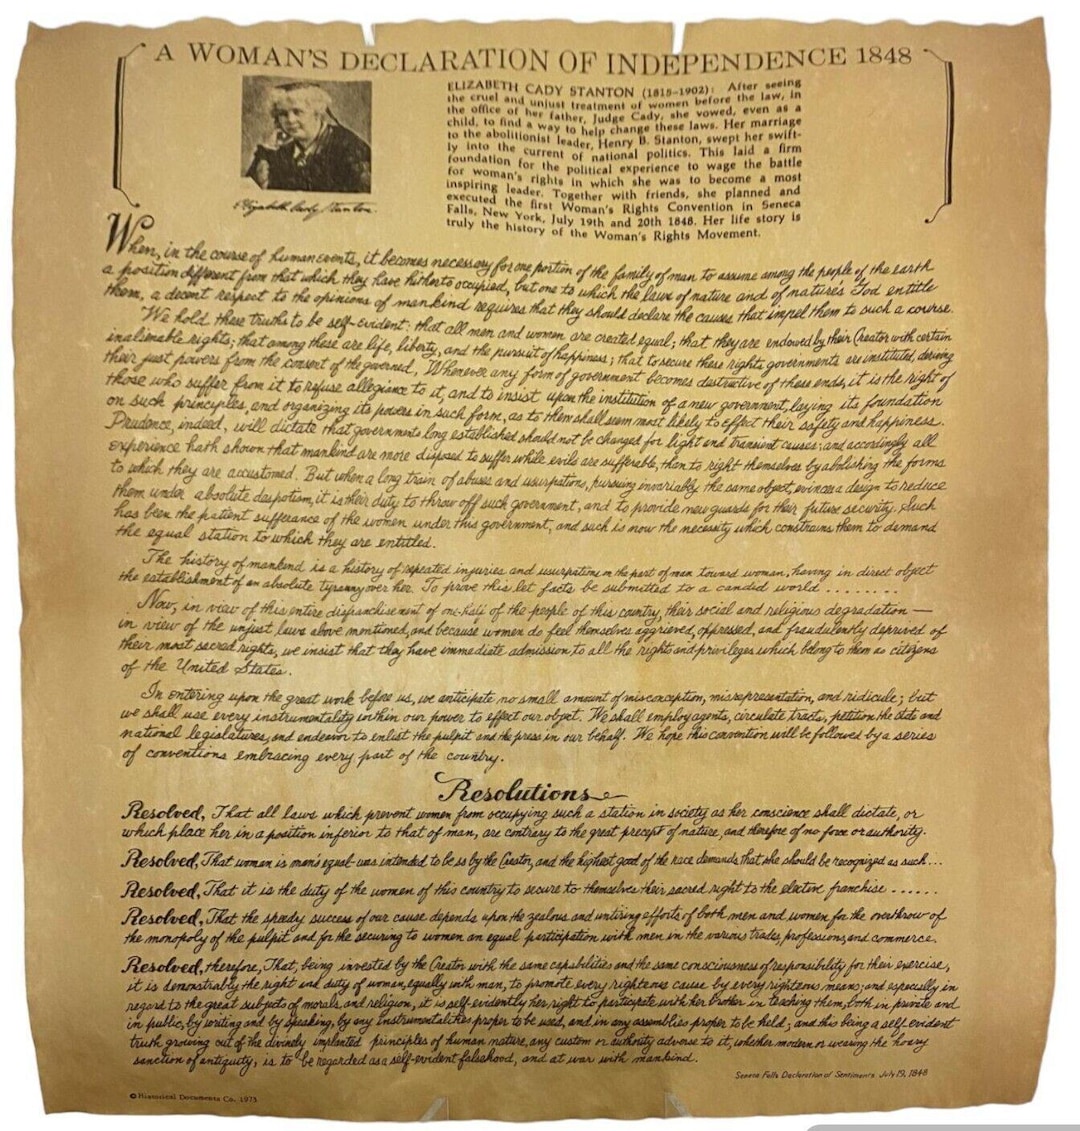 A WOMAN'S DECLARATION OF INDEPENDENCE 1848
ELIZABETH CADY STANTON (1815-1902): After seeing
the cruel and unjust treatment of women before the law, in
the office of her father, Judge Cady, she vowed, even as a
child, to find a way to help change these laws. Her marriage
to the abolitionist leader, Henry B. Stanton, swept her swift-
ly into the current of national politics. This laid a firm
foundation for the political experience to wage the battle
for woman's rights in which she was to become a most
inspiring leader. Together with friends, she planned and
executed the first Woman's Rights Convention in Seneca
Falls, New York, July 19th and 20th 1848. Her life story is
truly the history of the Woman's Rights Movement.
Elizabeth Cady Stanton
When, in the course of human events, it becomes necessary for one portion of the family of man to assume among the people of the earth
a position different from that which they have hitherto occupied, but one to which the laws of nature and of nature's God entitle
them, a decent respect to the opinions of mankind requires that they should declare the causes that impel them to such a course.
We hold these truths to be self-evident: that all men and women are created equal; that they are endowed by their Creator with certain
inalienable rights; that among these are life, liberty, and the pursuit of happiness; that to secure these rights governments are instituted, deriving
their just powers from the consent of the governed, Whenever any form of government becomes destructive of these ends, it is the right of
those who suffer from it to refuse allegiance to it, and to insist upon the institution of a new government, laying its foundation
on such principles, and organizing its powers in such form, as to them shall seem most likely to effect their safety and happiness.
Prudence, indeed, will dictate that governments long established should not be changed for light and transient causes; and accordingly all
experience hath shown that mankind are more disposed to suffer while evils are sufferable, than to right themselves by abolishing the forms
to which they are accustomed. But when a long train of abuses and usurpations, pursuing invariably the same object, evinces a design to reduce
them under absolute despotism, it is their duty to throw off such government, and to provide new guards for their future security. Such
has been the patient sufferance of the women under this government, and such is now the necessity which constrains them to demand
the equal station to which they are entitled.
The history of mankind is a history of repeated injuries and usurpations on the part of man toward woman, having in direct object
the establishment of an absolute tyranny over her. To prove this, let facts be submitted to a candid world ........
Now, in view of this entire disfranchisement of one-half of the people of this country, their social and religious degradation —
in view of the unjust laws above mentioned, and because women do feel themselves aggrieved, oppressed, and fraudulently deprived of
their most sacred rights, we insist that they have immediate admission to all the rights and privileges which belong to them as citizens
of the United States.
In entering upon the great work before us, we anticipate no small amount of misconception, misrepresentation, and ridicule; but
we shall use every instrumentality within our power to effect our object. We shall employ agents, circulate tracts, petition the state and
national legislatures, and endeavor to enlist the pulpit and the press in our behalf. We hope this convention will be followed by a series
of conventions embracing every part of the country.
Resolutions
Resolved, That all laws which prevent women from occupying such a station in society as her conscience shall dictate, or
which place her in a position inferior to that of man, are contrary to the great precept of nature, and therefore of no force or authority.
Resolved, That woman is man's equal-was intended to be so by the Creator, and the highest good of the race demands that she should be recognized as such...
Resolved, That it is the duty of the women of this country to secure to themselves their sacred right to the elective franchise ......
Resolved, That the speedy success of our cause depends upon the zealous and untiring efforts of both men and women for the overthrow of
the monopoly of the pulpit and for the securing to women an equal participation with men in the various trades, professions, and commerce.
Resolved, therefore, That, being invested by the Creator with the same capabilities and the same consciousness of responsibility for their exercise,
it is demonstrably the right and duty of woman, equally with man, to promote every righteous cause by every righteous means; and especially in
regard to the great subjects of morals and religion, it is self-evidently her right to participate with her brother in teaching them, both in private and
in public, by writing and by speaking, by any instrumentalities proper to be used, and in any assemblies proper to be held; and this being a self-evident
truth growing out of the divinely implanted principles of human nature, any custom or authority adverse to it, whether modern or wearing the hoary
sanction of antiquity, is to be regarded as a self-evident falsehood, and at war with mankind.
Seneca Falls Declaration of Sentiments. July 19, 1848
© Historical Documents Co., 1975